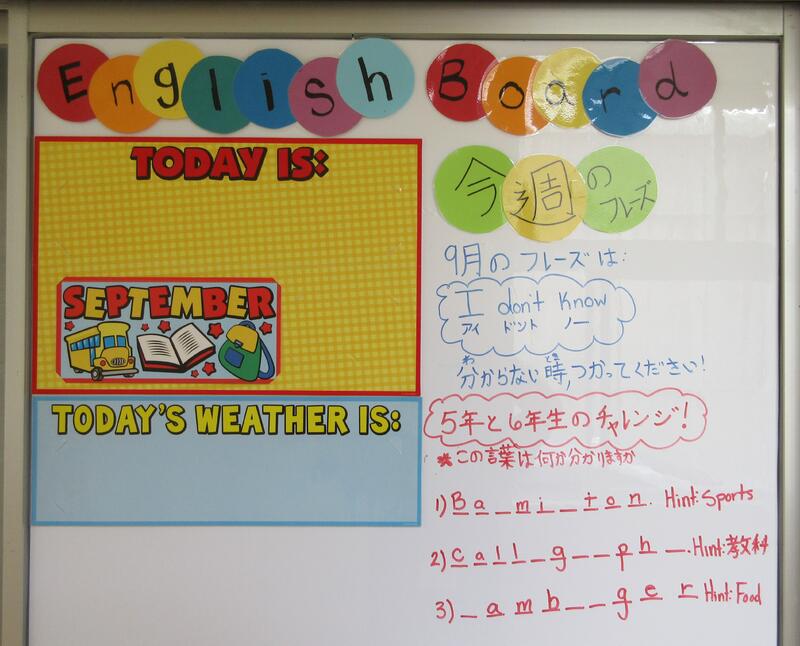 English Board
TODAY IS:
SEPTEMBER
TODAY'S WEATHER IS:
今週のフレーズ
9月のフレーズは:
I don't know
アイ ドント ノー
わ とき
分からない時,つかってください!
5年と6年生のチャレンジ!
*この言葉は何か分かりますか
1) B a _ m i _ t o n. Hint: Sports
2) c a l l _ g _ _ p h _. Hint: 教科
3) _ a m b _ _ g e r Hint: Food